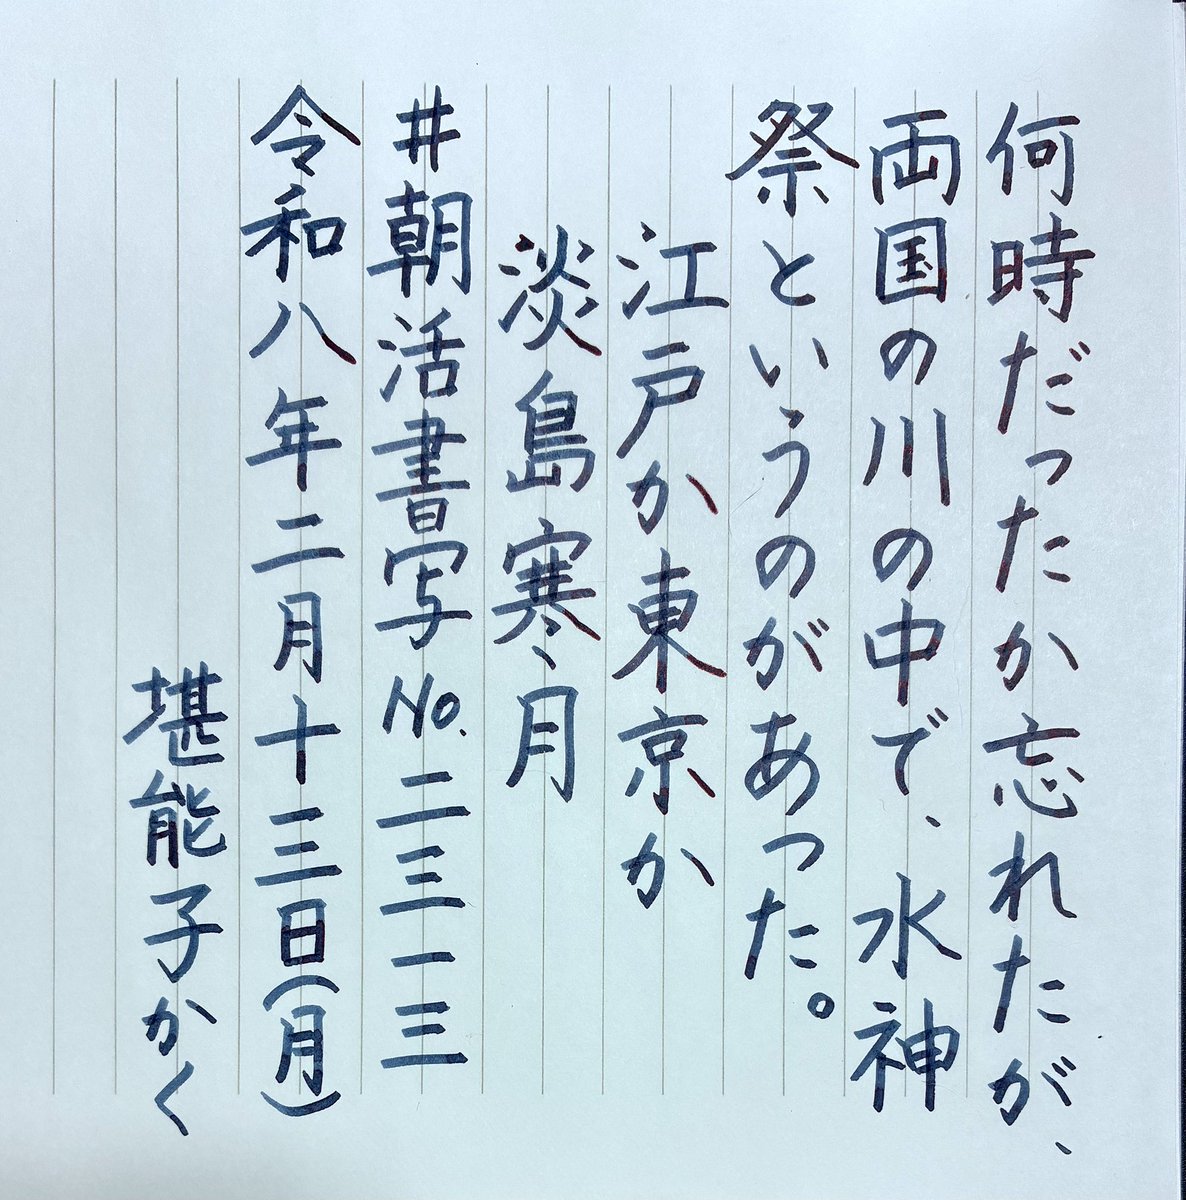 何時だったか忘れたが、
両国の川の中で、水神
祭というのがあった。
江戸か東京か
淡島寒月
#朝活書写No.二三一三
令和八年二月十三日(月)
堪能子かく